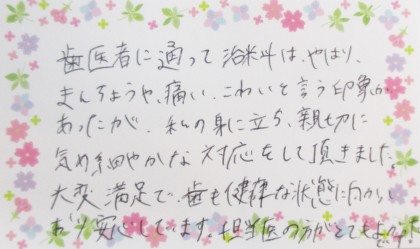 歯医者に通って治米斗は、やはり、
きんちょうや、痛い、こわいと言う印象が
あったが、私の身に立ち、親切に
気め細やかな対応をして頂きました
大変満足で、歯も健康な状態に向かい
おり安心しています。担当医の方がとても